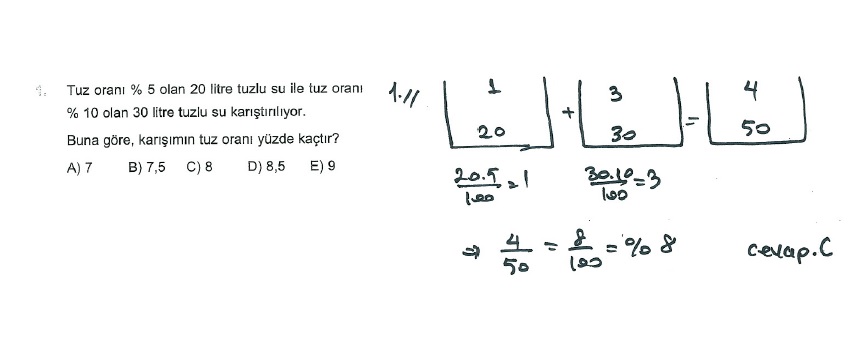 1. Tuz oranı % 5 olan 20 litre tuzlu su ile tuz oranı
% 10 olan 30 litre tuzlu su karıştırılıyor.
Buna göre, karışımın tuz oranı yüzde kaçtır?
A) 7 B) 7,5 C) 8 D) 8,5 E) 9
1.//
1 + 3 = 4
20 30 50
20.5/100 = 1 30.10/100 = 3
⇒ 4/50 = 8/100 = %8 cevap.C